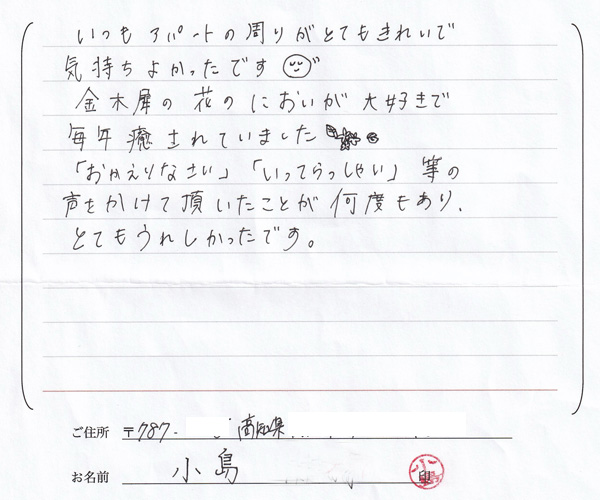 いつもアパートの周りがとてもきれいで
気持ちよかったです
金木犀の花のにおいが大好きで
毎年癒されていました
「おかえりなさい」「いってらっしゃい」等の
声をかけて頂いたことが何度もあり、
とてもうれしかったです。
ご住所 〒787- 高知県
お名前 小島 印